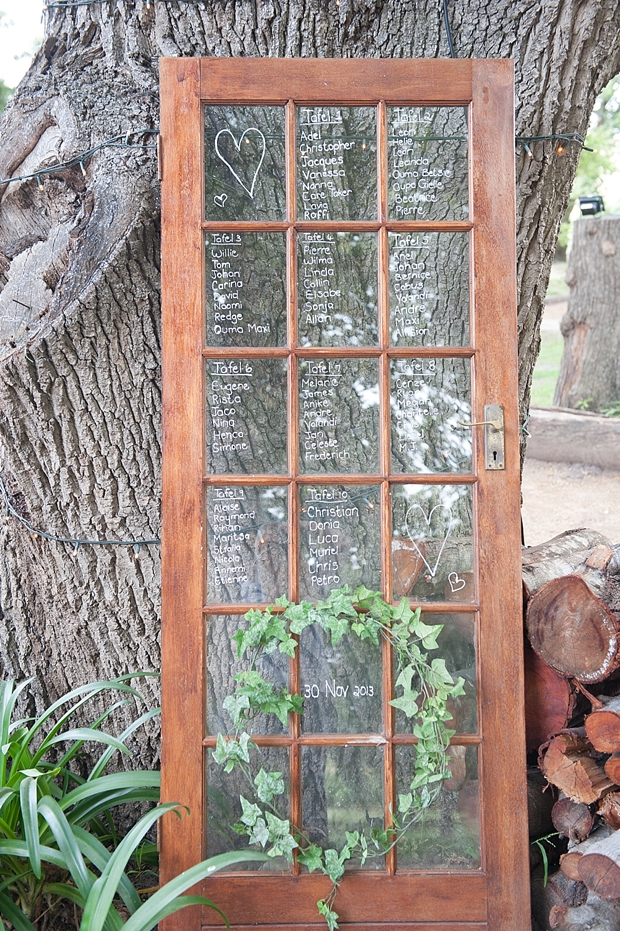 Tafel 1
Adel
Christopher
Jacques
Vanessa
Nanna
Care Taker
Lavia
Roffi
Tafel 2
Leon
Helie
Leanda
Ouma Betsie
Oupa Gielie
Beatrice
Pierre
Tafel 3
Willie
Tom
Johan
Carina
David
Naomi
Redge
Ouma Maxi
Tafel 4
Pierre
Wilma
Linda
Collin
Elsabe
Sonja
Allan
Tafel 5
Johan
Bernice
Cobus
Yolandi
Andre
Maxi
Tafel 6
Eugene
Rista
Jaco
Nina
Henco
Simone
Tafel 7
Melanie
James
Anike
Andre
Yolandi
Jan
Celeste
Frederich
Tafel 8
M.J
Tafel 9
Aloise
Raymond
Rihan
Maritsa
Nicola
Annemi
Etienne
Tafel 10
Christian
Donia
Luca
Muriel
Chris
Petro
30 Nov 2013